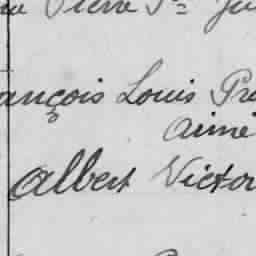 Pierre
ançois Louis Pr
aimé
Albert Victor